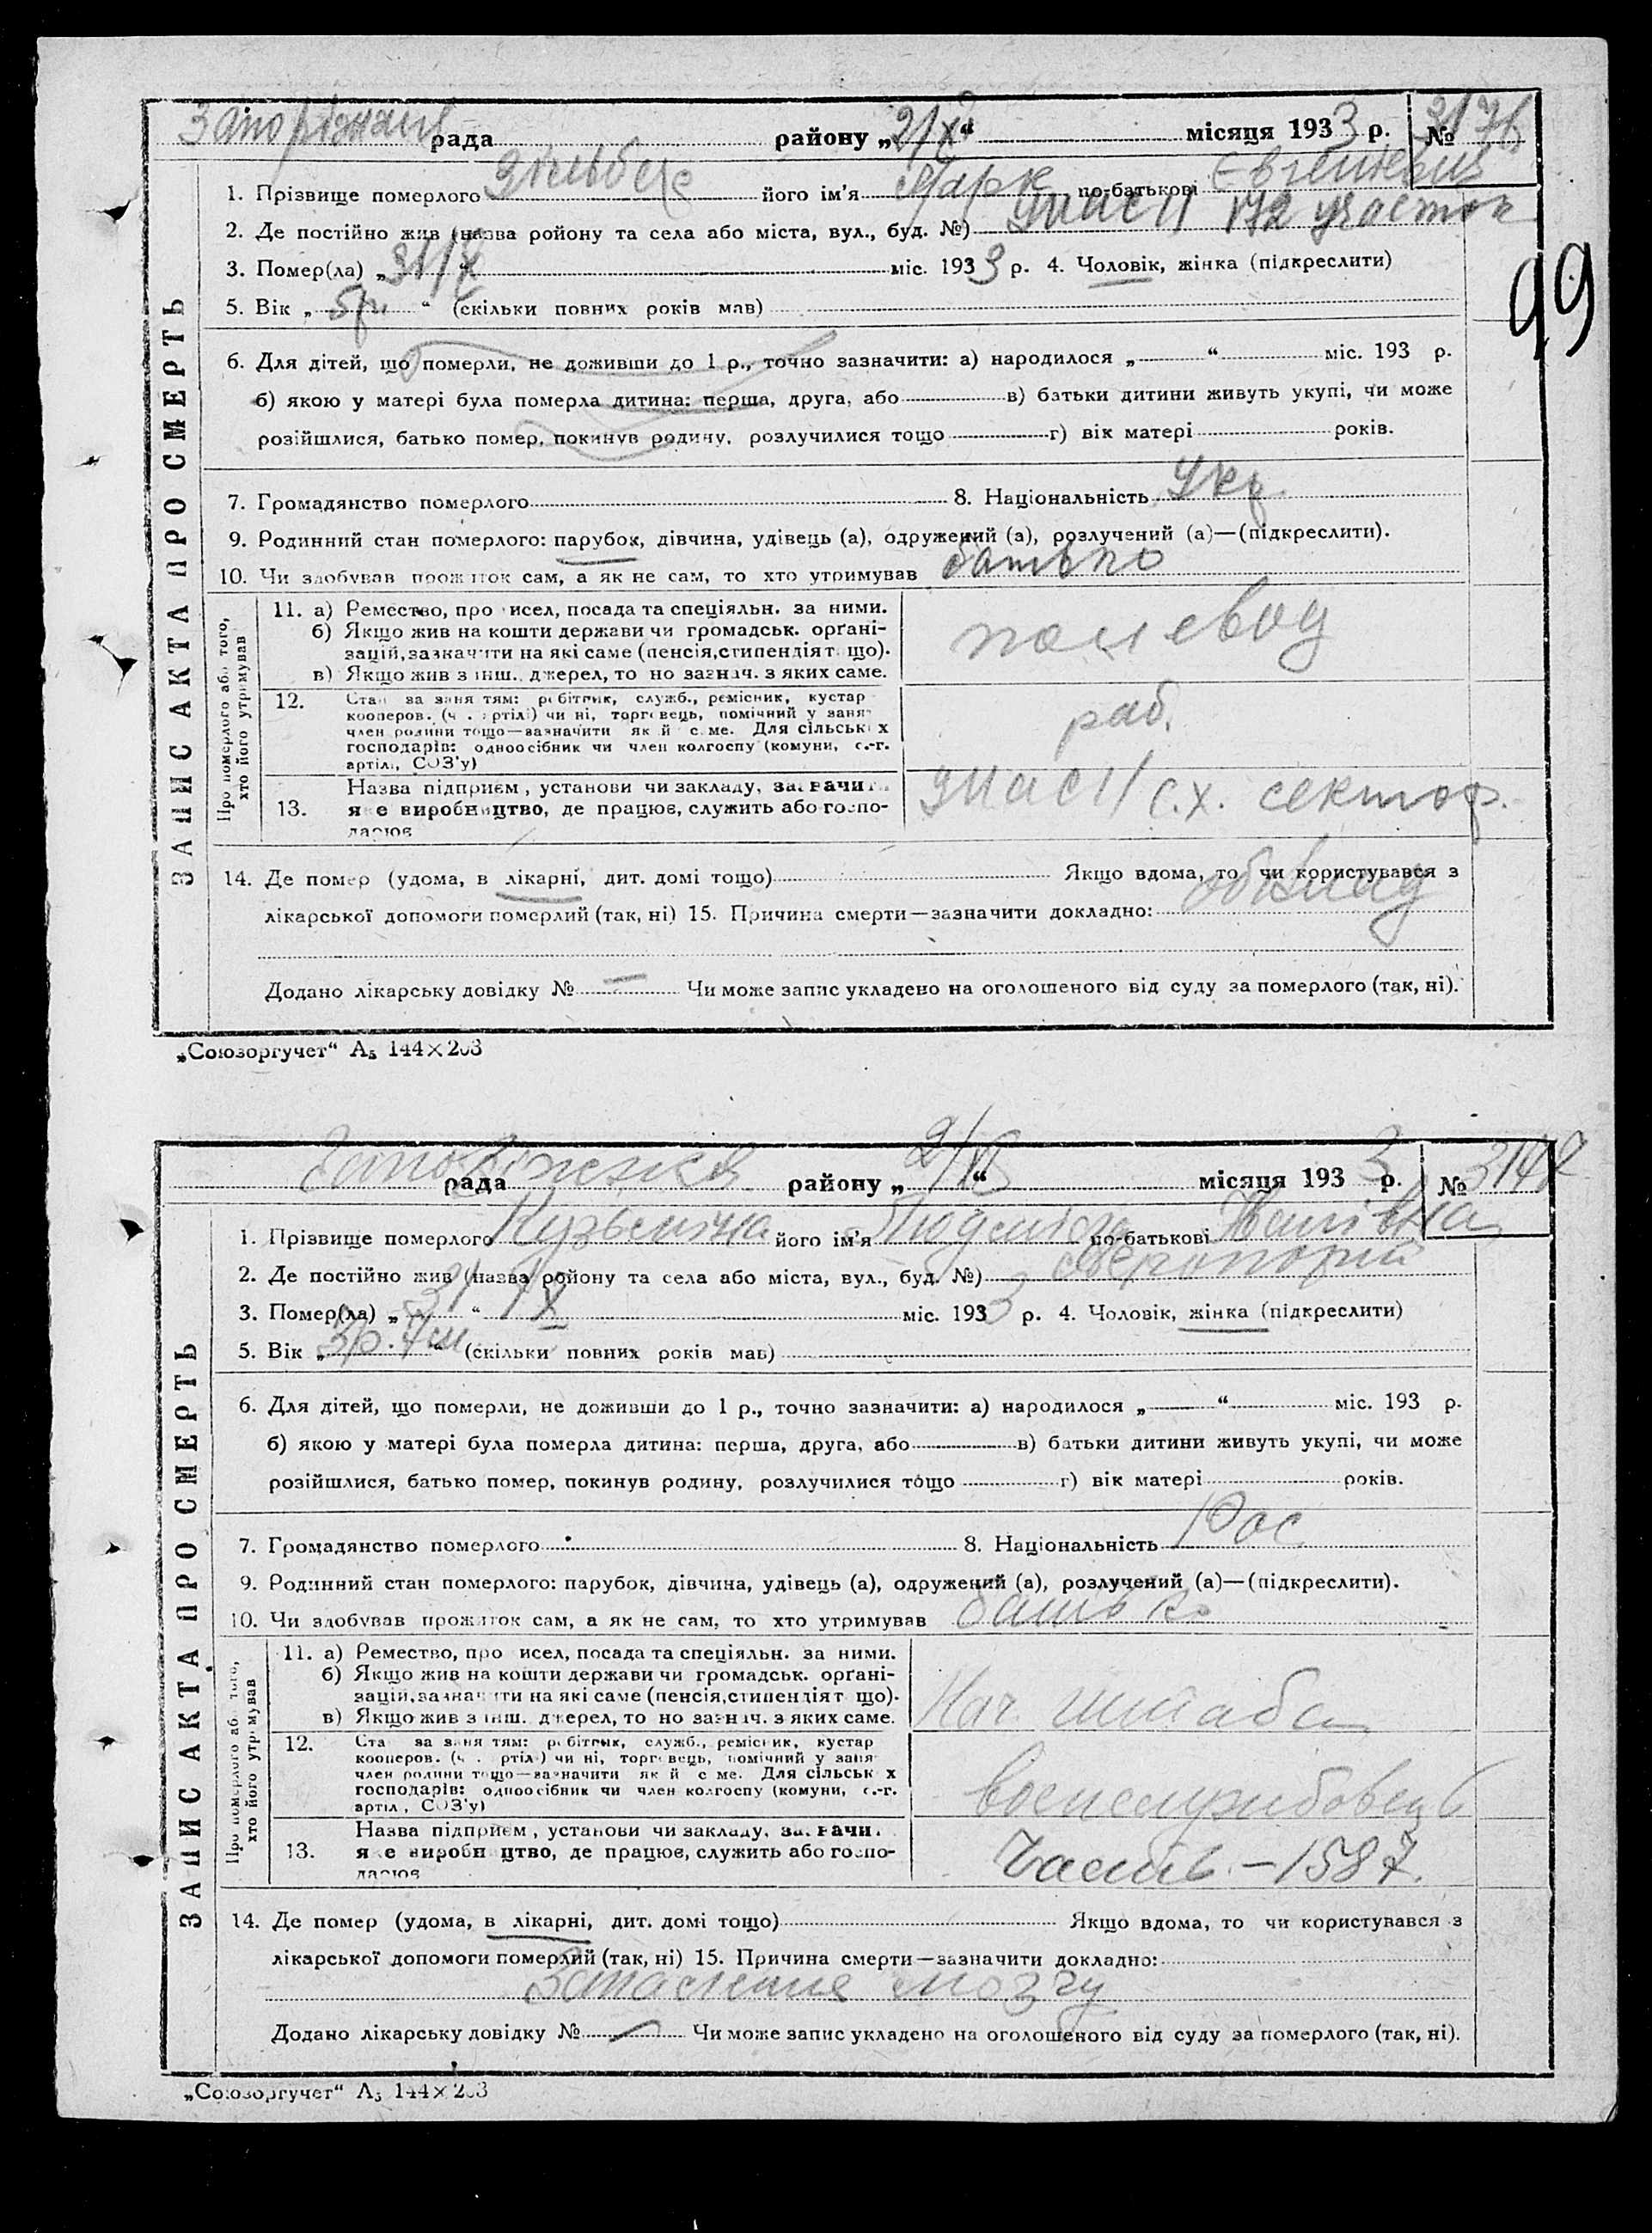 Запорізька рада району „21/X“ місяця 1933 р. №
1. Прізвище померлого його ім'я Марк по-батькові
2. Де постійно жив (назва ройону та села або міста, вул., буд. №) участок
3. Помер(ла) „ міс. 1933 р. 4. Чоловік, жінка (підкреслити)
5. Вік „5р.“ (скільки повних років мав)
6. Для дітей, що померли, не доживши до 1 р., точно зазначити: а) народилося „ “ міс. 193 р.
б) якою у матері була померла дитина: перша, друга, або в) батьки дитини живуть укупі, чи може
розійшлися, батько помер, покинув родину, розлучилися тощо г) вік матері років.
7. Громадянство померлого 8. Національність Укр.
9. Родинний стан померлого: парубок, дівчина, удівець (а), одружений (а), розлучений (а)—(підкреслити).
10. Чи здобував прожиток сам, а як не сам, то хто утримував батько
ЗАПИС АКТА ПРО СМЕРТЬ
Про померлого або того, хто його утримував
11. а) Ремество, про исел, посада та спеціяльн. за ними.
б) Якщо жив на кошти держави чи громадськ. орґані-
зацій, зазначити на які саме (пенсія, стипендія т що).
в) Якщо жив з інш. джерел, то но зазнач. з яких саме.
полевод
12. Стан за заня тям: робітник, служб., ремісник, кустар
кооперов. (ч . ртілі) чи ні, торговець, помічний у заня
член родини тощо—зазначити як й с ме. Для сільськ х
господарів: одноосібник чи член колгоспу (комуни, с.-г.
артілі, СОЗ'у)
раб.
13. Назва підприєм , установи чи закладу, зазначи
я е виробництво, де працює, служить або госпо-
дарює
с.х. сектор.
14. Де помер (удома, в лікарні, дит. домі тощо) Якщо вдома, то чи користувався з
лікарської допомоги померлий (так, ні) 15. Причина смерти—зазначити докладно:
Додано лікарську довідку № — Чи може запис укладено на оголошеного від суду за померлого (так, ні).
„Союзоргучет“ А5 144×203
99
рада району „ “ місяця 1933 р. №
1. Прізвище померлого Кузьміна його ім'я Людміла по-батькові Іванівна
2. Де постійно жив (назва ройону та села або міста, вул., буд. №)
3. Помер(ла) „ “ X міс. 1933 р. 4. Чоловік, жінка (підкреслити)
5. Вік „3р. 7м“ (скільки повних років мав)
6. Для дітей, що померли, не доживши до 1 р., точно зазначити: а) народилося „ “ міс. 193 р.
б) якою у матері була померла дитина: перша, друга, або в) батьки дитини живуть укупі, чи може
розійшлися, батько помер, покинув родину, розлучилися тощо г) вік матері років.
7. Громадянство померлого 8. Національність Рос
9. Родинний стан померлого: парубок, дівчина, удівець (а), одружений (а), розлучений (а)—(підкреслити).
10. Чи здобував прожиток сам, а як не сам, то хто утримував батько
ЗАПИС АКТА ПРО СМЕРТЬ
Про померлого або того, хто його утримував
11. а) Ремество, про исел, посада та спеціяльн. за ними.
б) Якщо жив на кошти держави чи громадськ. орґані-
зацій, зазначити на які саме (пенсія, стипендія т що).
в) Якщо жив з інш. джерел, то но зазнач. з яких саме.
Нач. штаба
12. Ста за заня тям: робітник, служб., ремісник, кустар
кооперов. (ч . ртілі) чи ні, торговець, помічний у заня
член родини тощо—зазначити як й с ме. Для сільськ х
господарів: одноосібник чи член колгоспу (комуни, с.-г.
артіл , СОЗ'у)
военслужбовець
13. Назва підприєм , установи чи закладу, зазначи
я е виробництво, де працює, служить або госпо-
дарює
Часть – 1587.
14. Де помер (удома, в лікарні, дит. домі тощо) Якщо вдома, то чи користувався з
лікарської допомоги померлий (так, ні) 15. Причина смерти—зазначити докладно:
мозгу
Додано лікарську довідку № — Чи може запис укладено на оголошеного від суду за померлого (так, ні).
„Союзоргучет“ А5 144×203